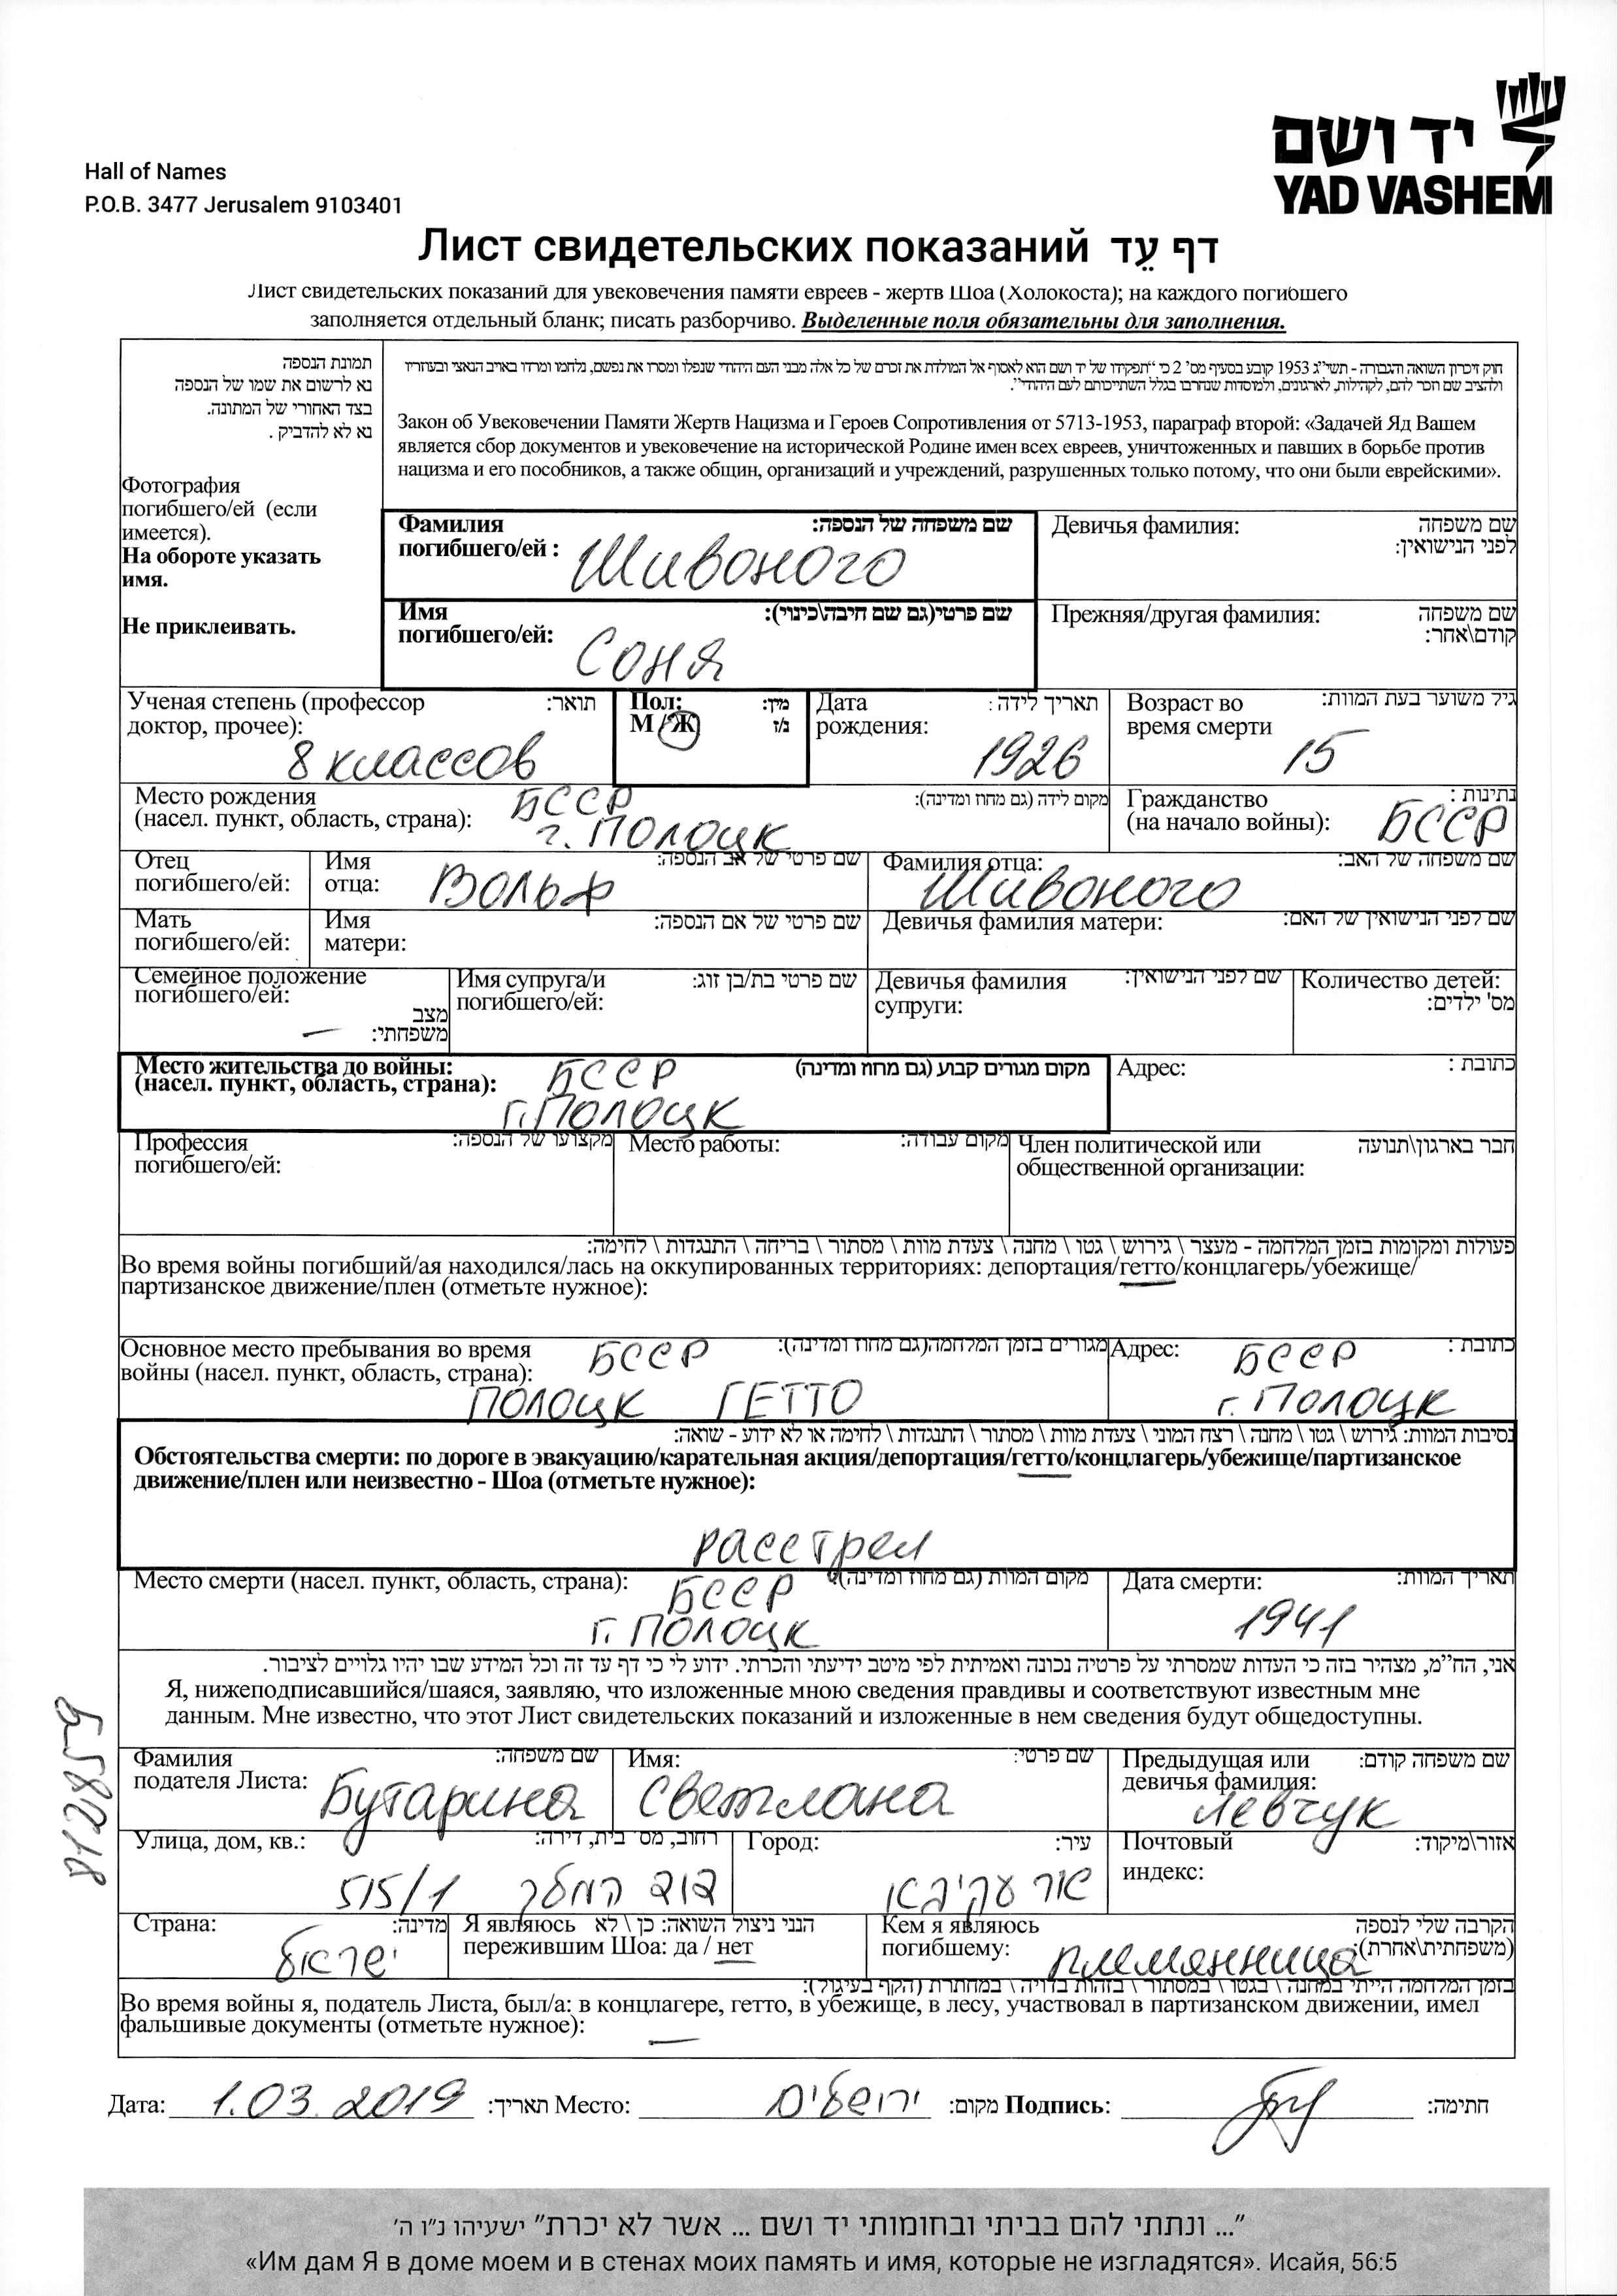 יד ושם
YAD VASHEM
Hall of Names
P.O.B. 3477 Jerusalem 9103401
Лист свидетельских показаний דף עֵד
Лист свидетельских показаний для увековечения памяти евреев - жертв Шоа (Холокоста); на каждого погибшего
заполняется отдельный бланк; писать разборчиво. Выделенные поля обязательны для заполнения.
תמונת הנספה
נא לרשום את שמו של הנספה
בצד האחורי של התמונה.
נא לא להדביק.
Фотография
погибшего/ей (если
имеется).
На обороте указать
имя.
Не приклеивать.
חוק זיכרון השואה והגבורה - תשי"ג 1953 קובע בסעיף מס' 2 כי "תפקידו של יד ושם הוא לאסוף אל המולדת את זכרם של כל אלה מבני העם היהודי שנפלו ומסרו את נפשם, נלחמו ומרדו באויב הנאצי ובעוזריו
ולהציב שם וזכר להם, לקהילות, לארגונים, ולמוסדות שנחרבו בגלל השתייכותם לעם היהודי".
Закон об Увековечении Памяти Жертв Нацизма и Героев Сопротивления от 5713-1953, параграф второй: «Задачей Яд Вашем
является сбор документов и увековечение на исторической Родине имен всех евреев, уничтоженных и павших в борьбе против
нацизма и его пособников, а также общин, организаций и учреждений, разрушенных только потому, что они были еврейскими».
Фамилия שם משפחה של הנספה:
погибшего/ей : Шивоного
Девичья фамилия: שם משפחה
לפני הנישואין:
Имя שם פרטי(גם שם חיבה\כינוי):
погибшего/ей: Соня
Прежняя/другая фамилия: שם משפחה
קודם\אחר:
Ученая степень (профессор תואר:
доктор, прочее): 8 классов
Пол: מין:
М / Ж ז/נ
Дата תאריך לידה :
рождения: 1926
Возраст во גיל משוער בעת המוות:
время смерти 15
Место рождения БССР מקום לידה (גם מחוז ומדינה):
(насел. пункт, область, страна): г. Полоцк
Гражданство נתינות :
(на начало войны): БССР
Отец погибшего/ей:
Имя отца: Вольф שם פרטי של אב הנספה:
Фамилия отца: Шивоного שם משפחה של האב:
Мать погибшего/ей:
Имя матери: שם פרטי של אם הנספה:
Девичья фамилия матери: שם לפני הנישואין של האם:
Семейное положение
погибшего/ей: מצב
משפחתי: —
Имя супруга/и שם פרטי בת/בן זוג:
погибшего/ей:
Девичья фамилия שם לפני הנישואין:
супруги:
Количество детей:
מס' ילדים:
Место жительства до войны: БССР מקום מגורים קבוע (גם מחוז ומדינה)
(насел. пункт, область, страна): г. Полоцк
Адрес: כתובת :
Профессия מקצועו של הנספה:
погибшего/ей:
Место работы: מקום עבודה:
Член политической или חבר בארגון\תנועה
общественной организации:
פעולות ומקומות בזמן המלחמה - מעצר \ גירוש \ גטו \ מחנה \ צעדת מוות \ מסתור \ בריחה \ התנגדות \ לחימה:
Во время войны погибший/ая находился/лась на оккупированных территориях: депортация/гетто/концлагерь/убежище/
партизанское движение/плен (отметьте нужное):
Основное место пребывания во время БССР מגורים בזמן המלחמה(גם מחוז ומדינה):
войны (насел. пункт, область, страна):
Полоцк ГЕТТО
Адрес: БССР כתובת :
г. Полоцк
נסיבות המוות: גירוש \ גטו \ מחנה \ רצח המוני \ צעדת מוות \ מסתור \ התנגדות \ לחימה או לא ידוע - שואה:
Обстоятельства смерти: по дороге в эвакуацию/карательная акция/депортация/гетто/концлагерь/убежище/партизанское
движение/плен или неизвестно - Шоа (отметьте нужное):
расстрел
Место смерти (насел. пункт, область, страна): БССР מקום המוות (גם מחוז ומדינה):
г. Полоцк
Дата смерти: תאריך המוות:
1941
אני, הח"מ, מצהיר בזה כי העדות שמסרתי על פרטיה נכונה ואמיתית לפי מיטב ידיעתי והכרתי. ידוע לי כי דף עד זה וכל המידע שבו יהיו גלויים לציבור.
Я, нижеподписавшийся/шаяся, заявляю, что изложенные мною сведения правдивы и соответствуют известным мне
данным. Мне известно, что этот Лист свидетельских показаний и изложенные в нем сведения будут общедоступны.
812859
Фамилия שם משפחה:
подателя Листа: Бутарина
Имя: שם פרטי:
Светлана
Предыдущая или שם משפחה קודם:
девичья фамилия:
Левчук
Улица, дом, кв.: רחוב, מס' בית, דירה:
דוד המלך 515/1
Город: עיר:
אור עקיבא
Почтовый אזור\מיקוד:
индекс:
Страна: מדינה:
ישראל
Я являюсь הנני ניצול השואה: כן \ לא
пережившим Шоа: да / нет
Кем я являюсь הקרבה שלי לנספה
погибшему: племянница (משפחתית\אחרת):
בזמן המלחמה הייתי במחנה \ בגטו \ במסתור \ בזהות בדויה \ במחתרת (הקף בעיגול):
Во время войны я, податель Листа, был/а: в концлагере, гетто, в убежище, в лесу, участвовал в партизанском движении, имел
фальшивые документы (отметьте нужное): —
Дата: 1.03.2019 תאריך: Место: ירושלים מקום: Подпись: חתימה:
"... ונתתי להם בביתי ובחומותי יד ושם ... אשר לא יכרת" ישעיהו נ"ו ה'
«Им дам Я в доме моем и в стенах моих память и имя, которые не изгладятся». Исайя, 56:5